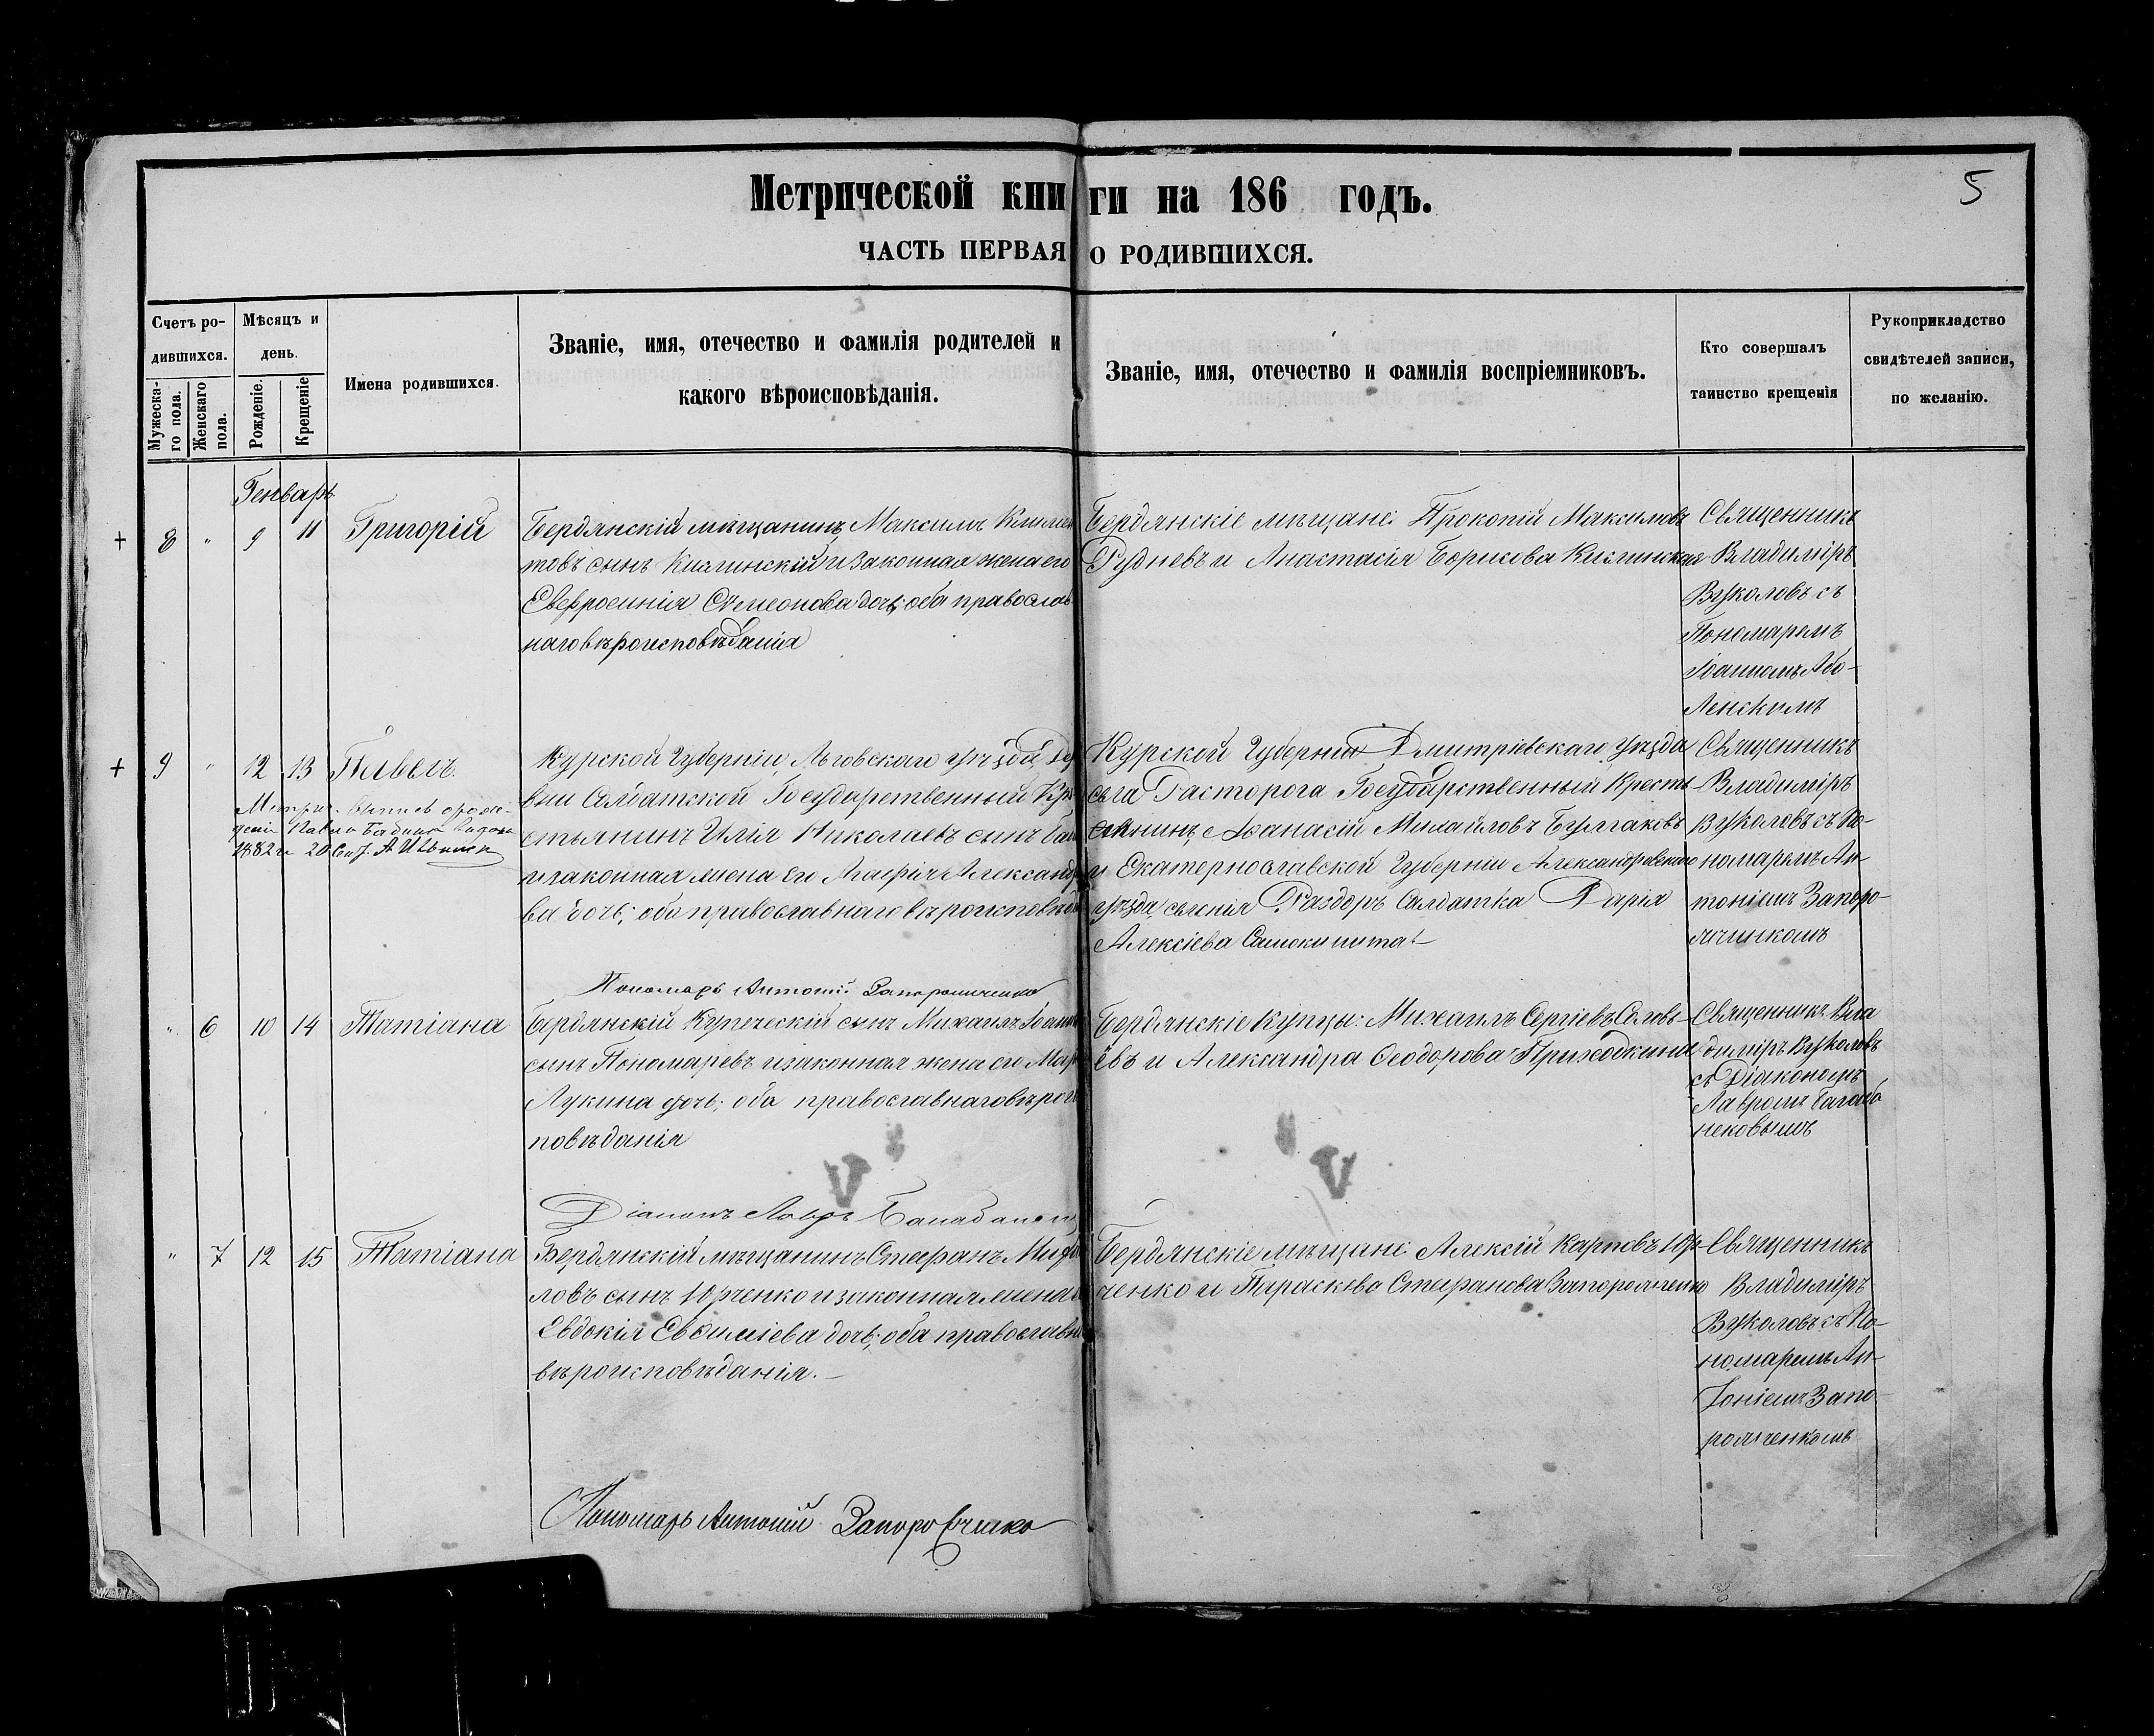 5
Метрической книги на 186 годъ.
ЧАСТЬ ПЕРВАЯ О РОДИВШИХСЯ.
Счетъ ро-
дившихся.
Мужеска-
го пола.
Женскаго
пола.
Мѣсяцъ и
день.
Рожденіе.
Крещеніе
Имена родившихся.
Званіе, имя, отечество и фамилія родителей и
какого вѣроисповѣданія.
Званіе, имя, отечество и фамилія воспріемниковъ.
Кто совершалъ
таинство крещенія
Рукоприкладство
свидѣтелей записи,
по желанію.
Генварь
+ 8 " 9 11 Григорій
Бердянскій мѣщанинъ Максимъ Климен
товъ сынъ Кислинскій и законная жена его
Евфросинія Семеонова дочь; оба православ
наго вѣроисповѣданія
Бердянскіе мѣщане: Прокопій Максимовъ
Рудневъ и Анастасія Борисова Кислинская
Священникъ
Владиміръ
Вуколовъ съ
Пономаремъ
Іоанномъ Або-
ленскимъ
+ 9 " 12 13 Павелъ.
Метрич.
Павла
1882 г. 20
Курской Губерніи, Льговскаго уѣзда, Де
вни Солдатской Государственный Кре
стьянинъ Илія Николаевъ сынъ
и законная жена его Агафія Александро
ва дочь; оба православнаго вѣроисповѣда
Курской Губерніи Дмитріевскаго уѣзда
села Расторога Государственный Кресть-
янинъ, Аѳанасій Михайловъ Булгаковъ
и Екатеринославской Губерніи Александровскаго
уѣзда, селенія Раздоръ Солдатка Дарія
Алексіева
Священникъ
Владиміръ
Вуколовъ съ По-
номаремъ Ан-
тоніемъ Запоро-
жченкомъ
Пономарь Антоній Запорожченко
" 6 10 14 Татіана
Бердянскій Купеческій сынъ Михаилъ Іоанн
сынъ Пономаревъ и законная жена его Мар
Лукина дочь; оба православнаго вѣрои
повѣданія
Бердянскіе Купцы: Михаилъ Сергіевъ Соловь-
ёвъ и Александра Ѳеодорова Приходкина
Священникъ Вла
диміръ Вуколовъ
съ Діякономъ
Лавромъ
Діаконъ Лавръ
" 7 12 15 Татіана
Бердянскій мѣщанинъ Стефанъ
ловъ сынъ Юрченко и законная жена
Евдокія Евѳиміева дочь; оба православна
вѣроисповѣданія.
Бердянскіе мѣщане: Алексій Карповъ Юр-
ченко и Параскева Стефанова Запорожченко
Священникъ
Владиміръ
Вуколовъ съ По-
номаремъ Ан-
тоніемъ Запо-
рожченкомъ
Пономарь Антоній Запорожченко